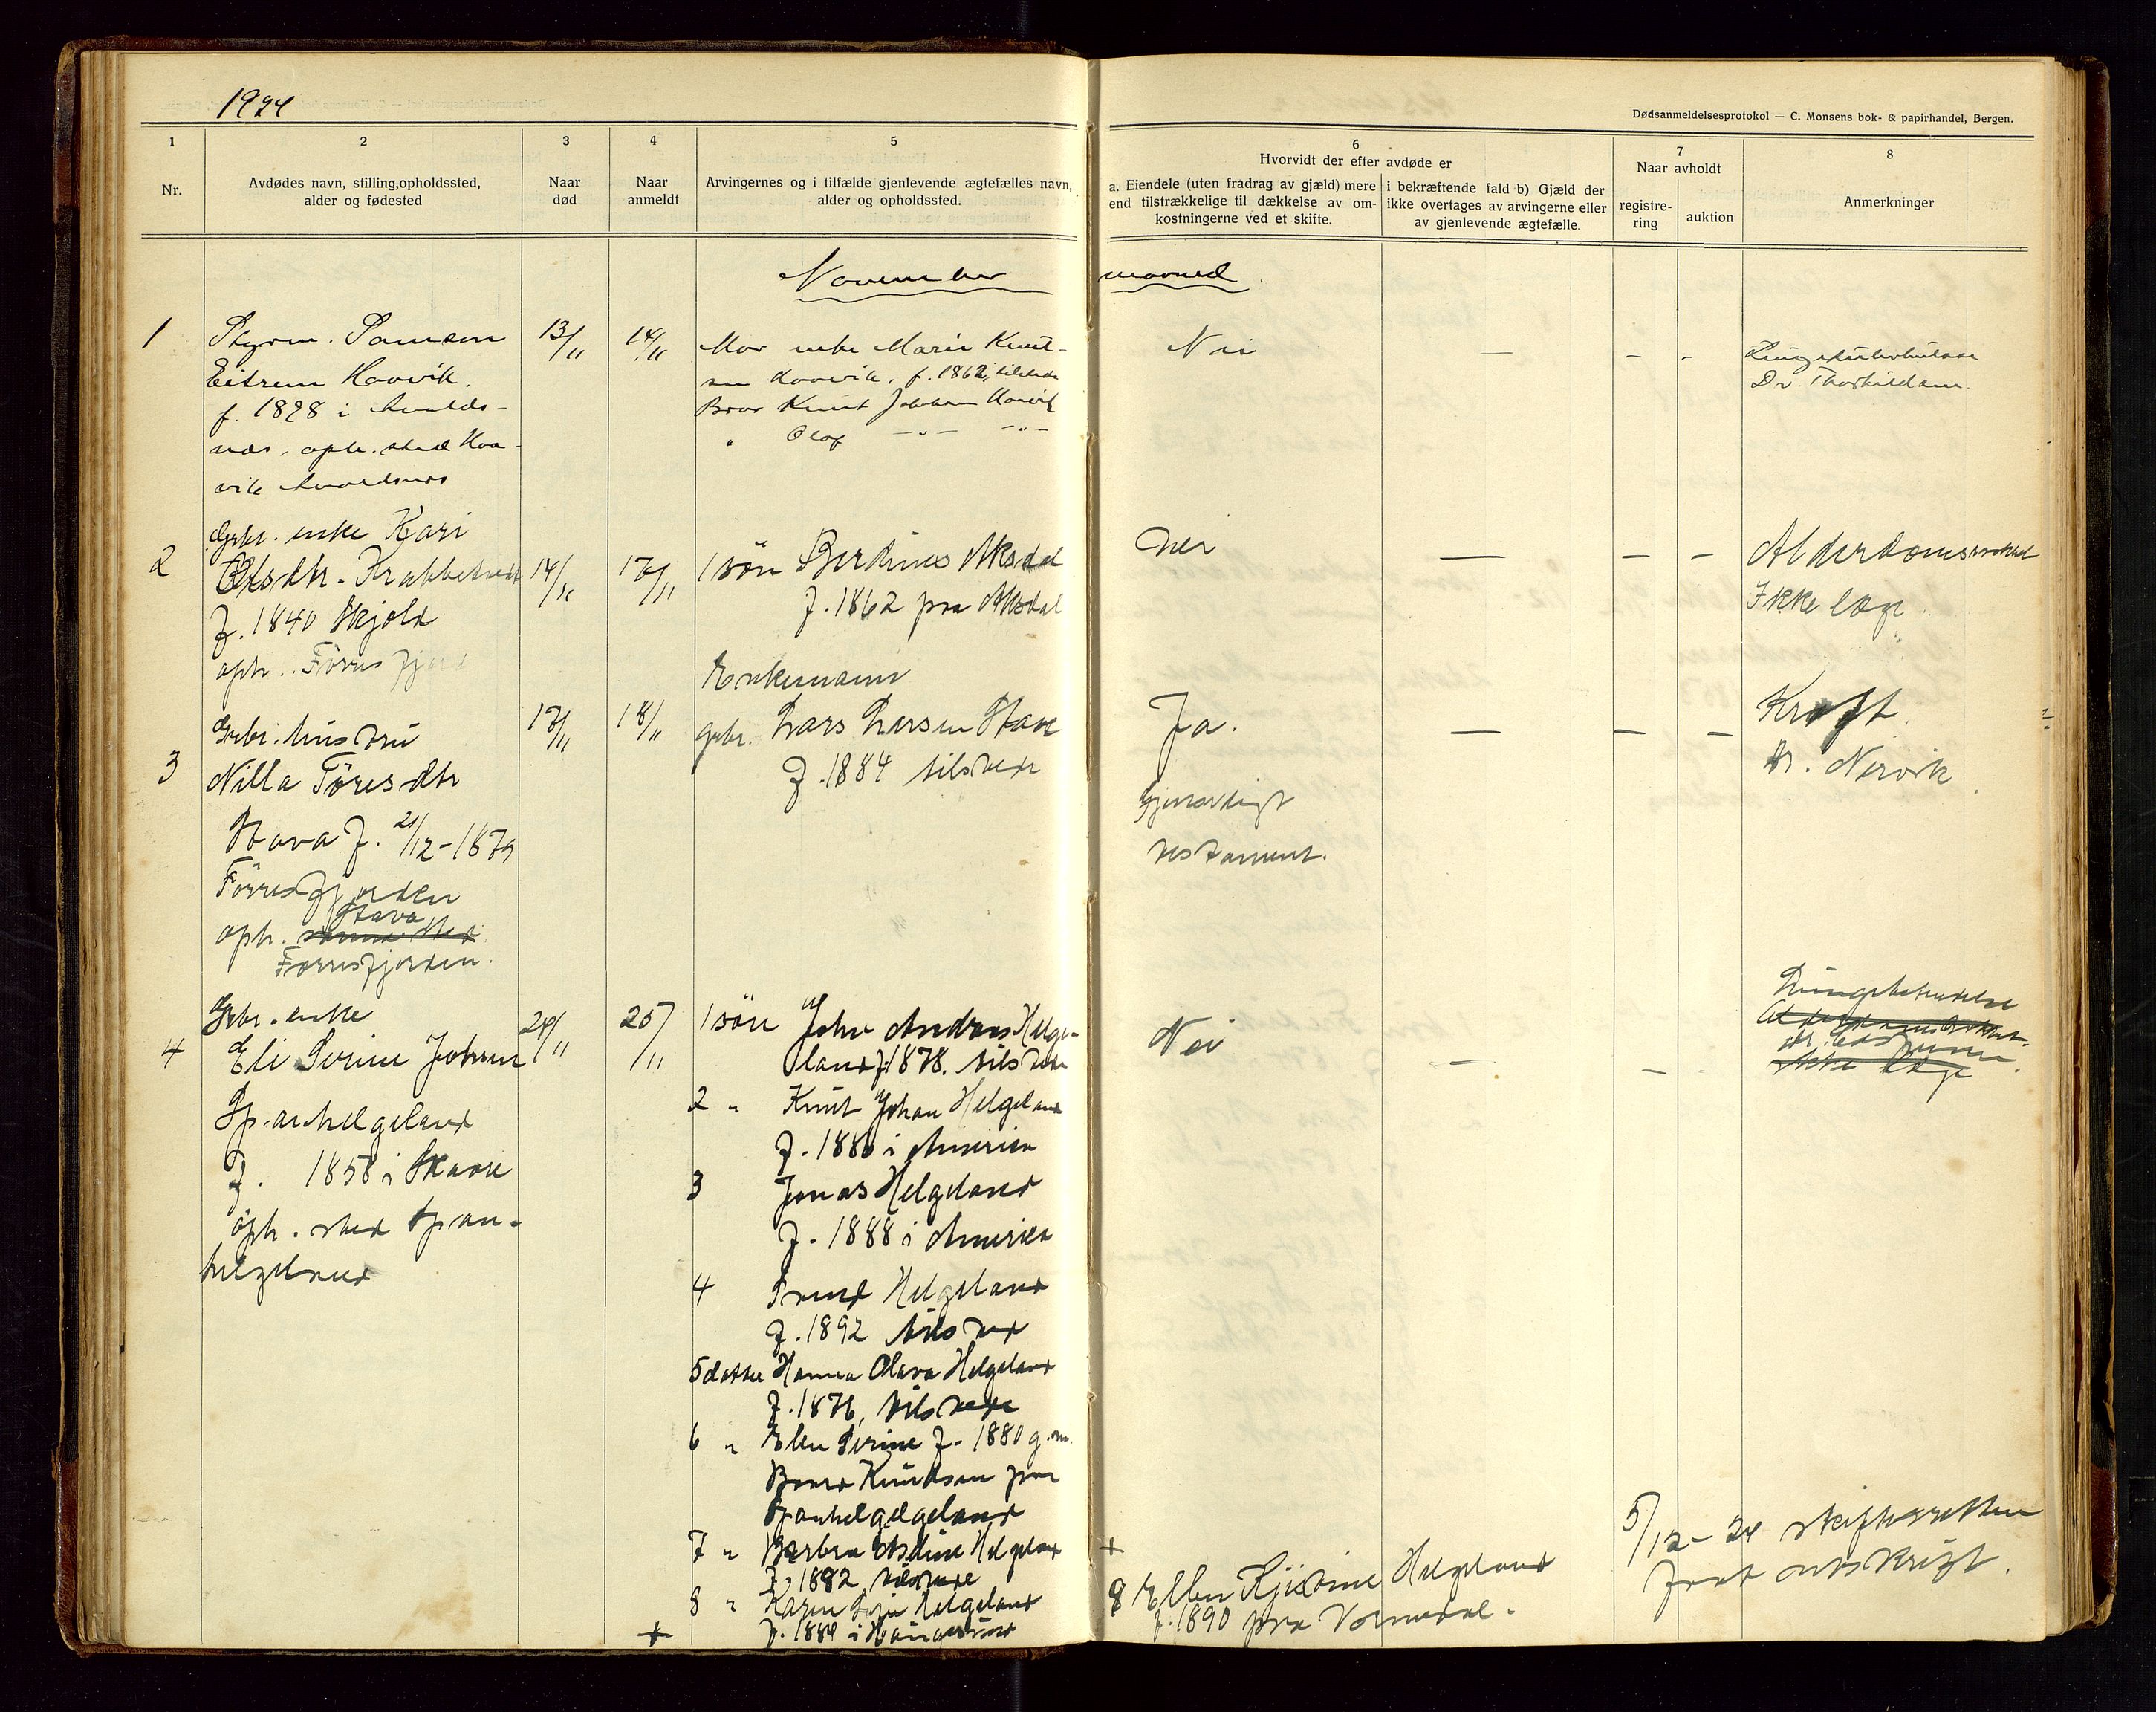 1924
Dødsanmeldelsesprotokol — C. Monsens bok- & papirhandel, Bergen.
1
2
3
4
5
6
7
8
Nr.
Avdødes navn, stilling, opholdssted,
alder og fødested
Naar
død
Naar
anmeldt
Arvingernes og i tilfælde gjenlevende ægtefælles navn,
alder og opholdssted.
Hvorvidt der efter avdøde er
a. Eiendele (uten fradrag av gjæld) mere
end tilstrækkelige til dækkelse av om-
kostningerne ved et skifte.
i bekræftende fald b) Gjæld der
ikke overtages av arvingerne eller
av gjenlevende ægtefælle.
Naar avholdt
registre-
ring
auktion
Anmerkninger
November maaned
1
Styrm. Samson
Eitrem Haavik.
f. 1898 i Avalds-
nes, oph. sted Haa-
vik Avaldsnes
13/11
14/11
Mor enke Marie Knut-
sen Haavik, f. 1862, tilstede
Bror Knut Johnsen Haavik
" Olaf -"- -"-
Nei
— - -
Lungetuberkulose
Dr. Thorkildsen
2
Gbr. enke Kari
Olsdtr. Krabbetveit
f. 1840 Skjold
oph. Førresfjord
14/11
17/11
1 søn Berdines Aksdal
f. 1862 paa Aksdal
Nei
— — -
Alderdomssvakhet
Ikke læge
3
Gbr. hustru
Nilla Tøresdtr
Stava f. 21/12-1879
Førresfjorden
oph. Stava
samme sted
Førresfjorden.
17/11
18/11
Enkemann
gbr. Lars Larsen Stava
f. 1884 tilstede
Ja.
Gjensidigt
testament.
— — —
Kræft.
Dr. Nervik
4
Gbr. enke
Eli Serine Johnsen
Spanhelgeland
f. 1858 i Skaare
oph. sted Span-
helgeland
24/11
25/11
1 søn John Andreas Helge-
land f. 1878. tilstede
2 " Knut Johan Helgeland
f. 1886 i Amerika
3 Jonas Helgeland
f. 1888 i Amerika
4 Trond Helgeland
f. 1892 tilsted
5 datter Hanna Olava Helgeland
f. 1876, tilstede
6 " Elen Serine f. 1880 g. m.
Baard Knudsen paa
Spanhelgelgeland
7 " Barbra Aseline Helgeland
f. 1882 tilstede
8 " Karen Helgeland
f. 1884 i Haugesund
+
Nei
— —
Lungebetendelse
Alderdomssvakhet.
dr.
Ikke læge
+
9 Ellen Kjistine Helgeland
f. 1890 paa Vormedal.
5/12-24 skifteretten
faat utskrift.